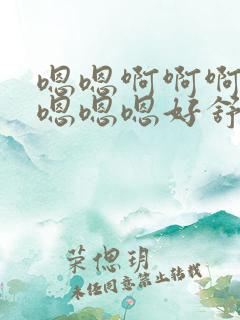 嗯嗯啊啊啊
嗯嗯嗯好舒
荣偲玥
未经同意禁止转载